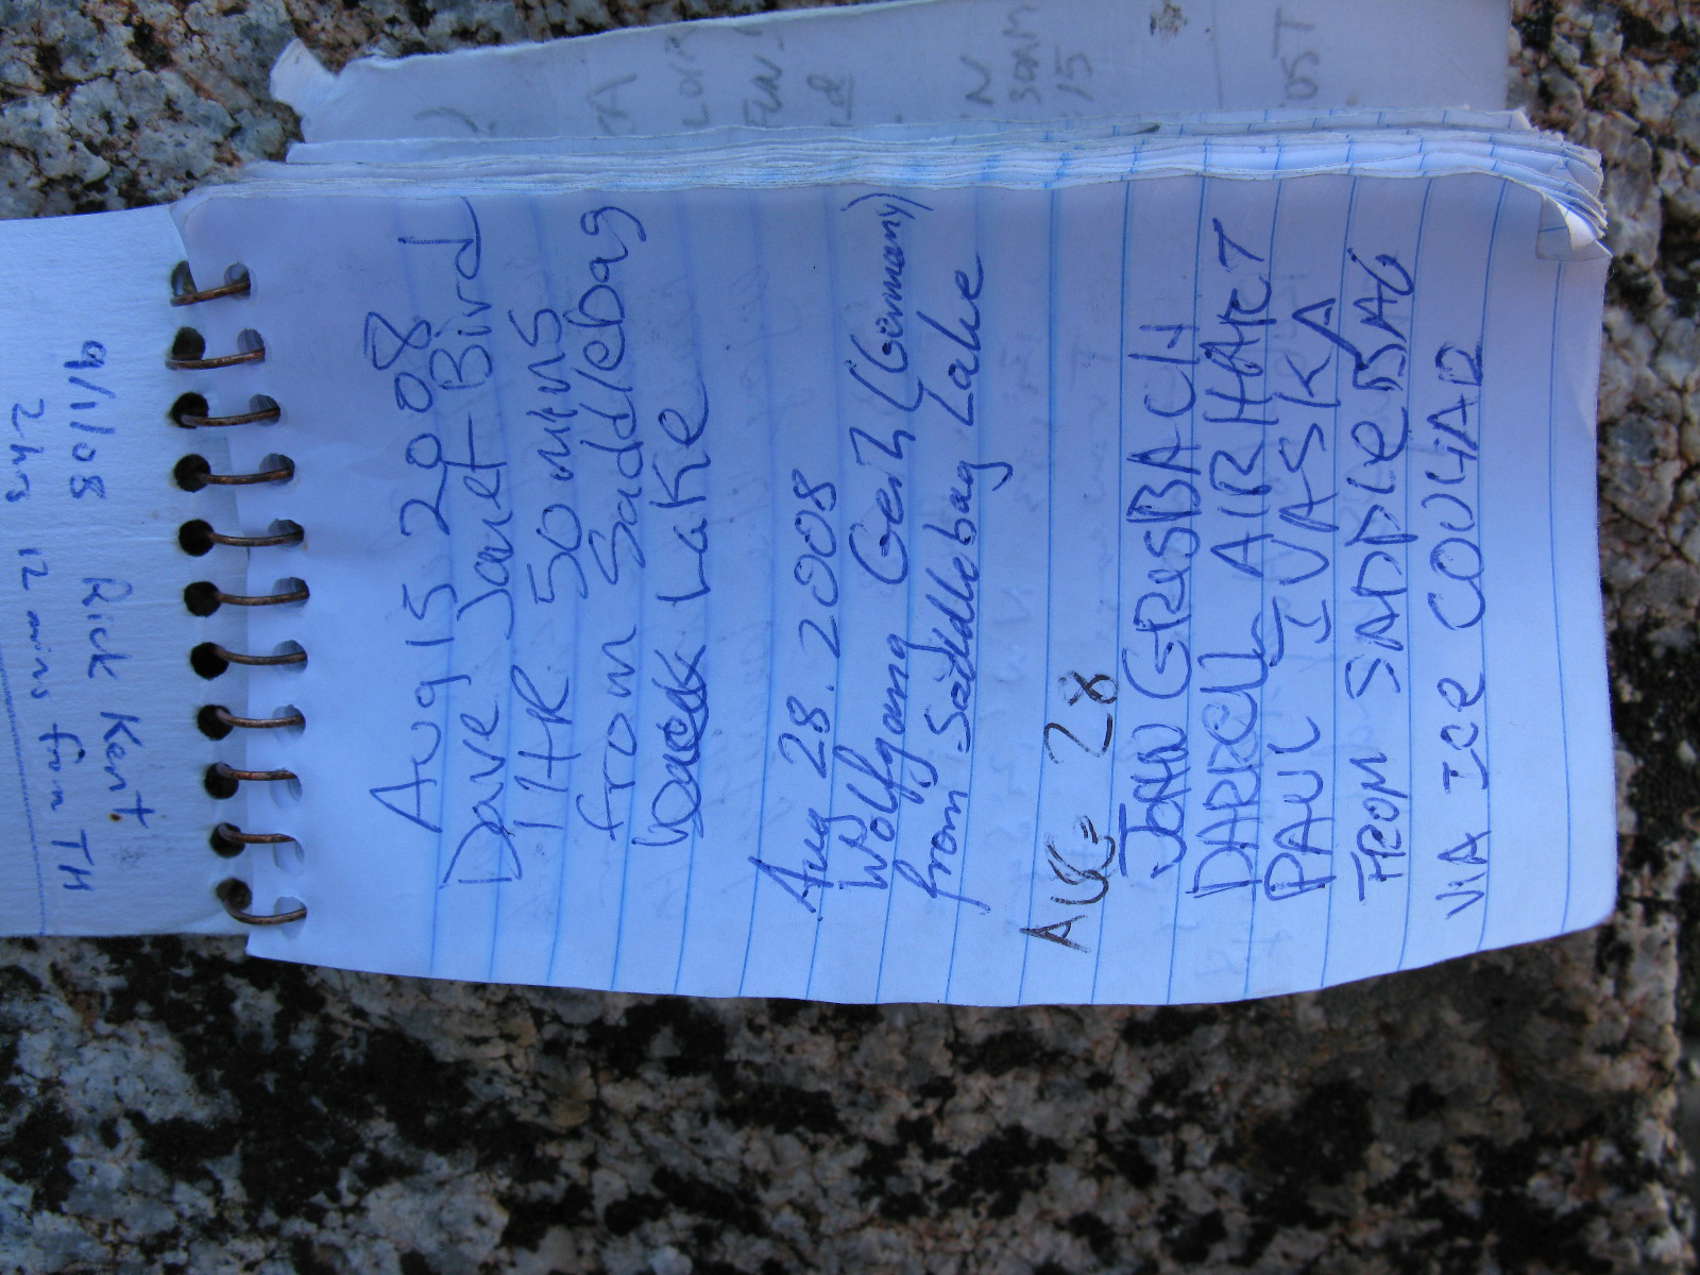 Aug 15 2008
Dave Janet Bird
1 HR 50 mins
from Saddlebag
Lake
Aug 28. 2008
Wolfgang (Germany)
from Saddlebag Lake
AUG 28
JOHN GRESBACH
DARRELL AIRHART
PAUL IVASKA
FROM SADDLEBAG
VIA ICE COULIAR
9/1/08 Rick Kent
2 hrs 12 mins from TH
N
15
OST